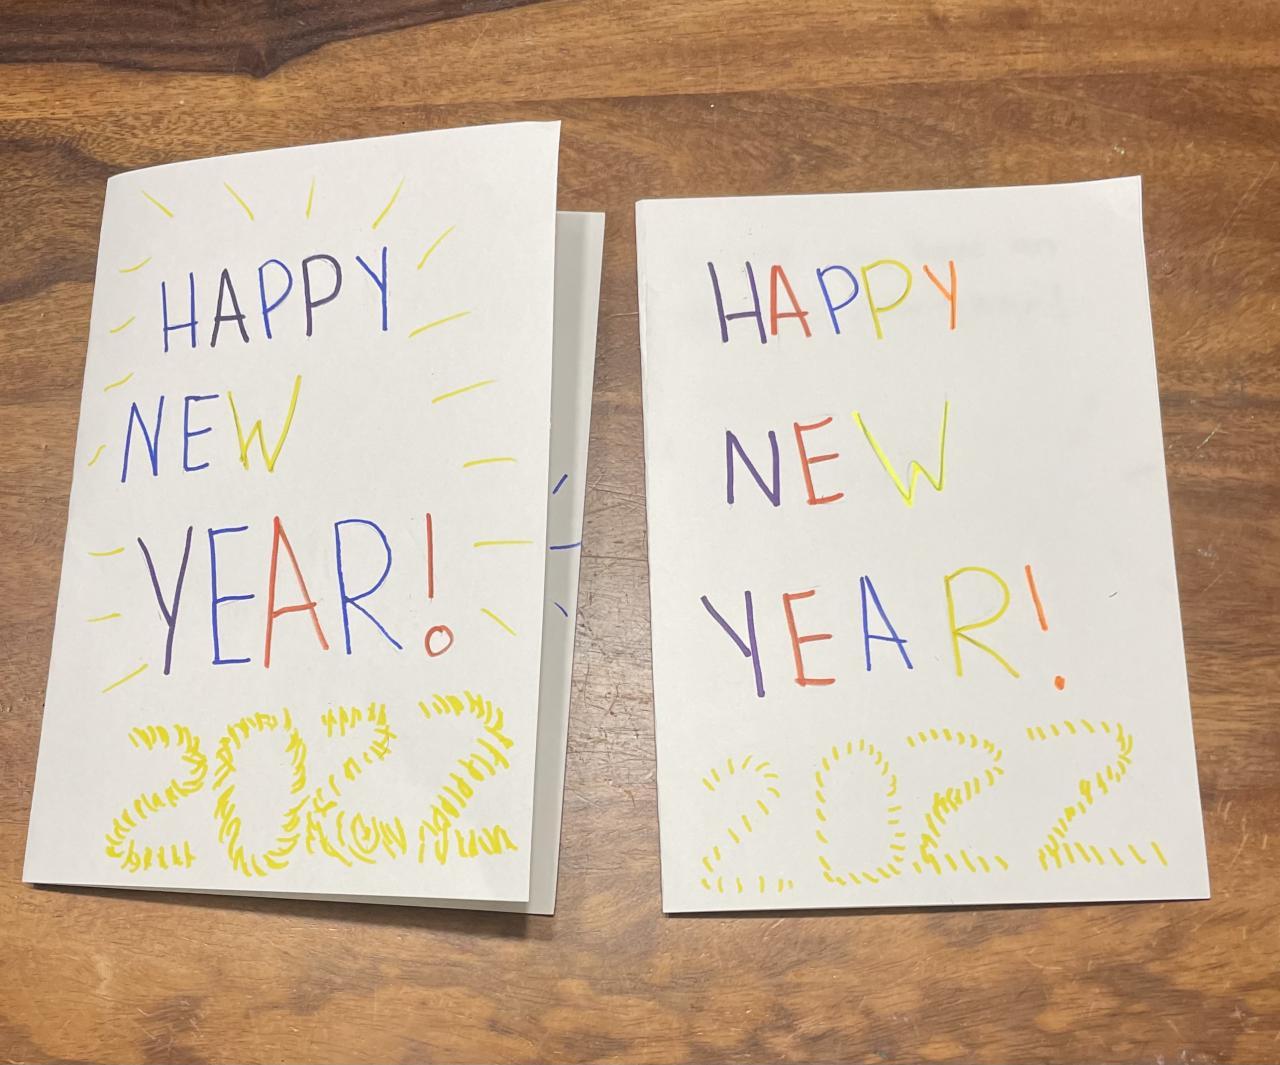 HAPPY
NEW
YEAR!
2022
HAPPY
NEW
YEAR!
2022